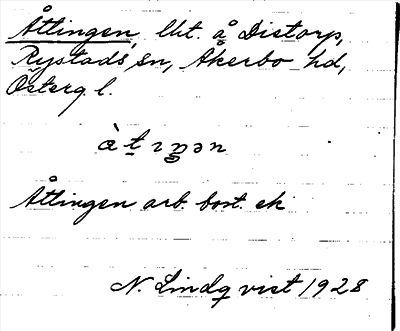 Åttingen, lht. å Distorp,
Rystads sn, Åkerbo hd,
Österg l.
Åttingen arb. bost. ek
N. Lindqvist 1928